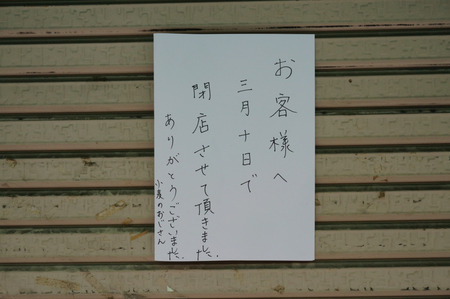 お客様へ
三月十日で
閉店させて頂きました。
ありがとうございました。
小麦のおじさん